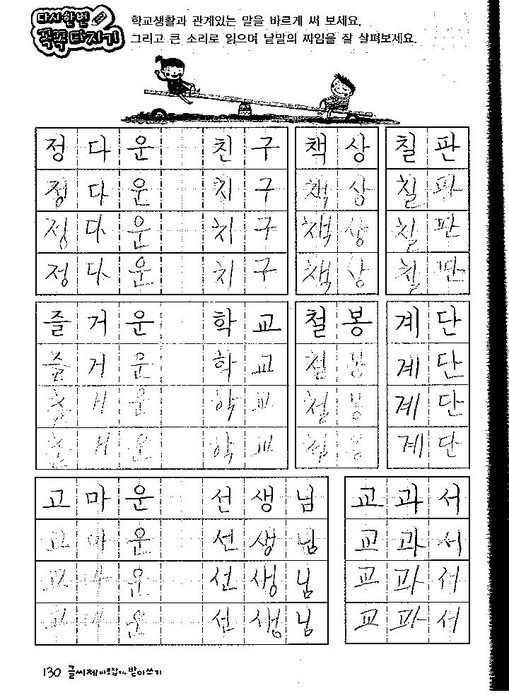 다시한번
꼭꼭 다지기
학교생활과 관계있는 말을 바르게 써 보세요.
그리고 큰 소리로 읽으며 낱말의 짜임을 잘 살펴보세요.
정다운 친구 책상 칠판
정다운 친구 책상 칠판
정다운 친구 책상 칠판
정다운 친구 책상 칠판
즐거운 학교 철봉 계단
즐거운 학교 철봉 계단
즐거운 학교 철봉 계단
즐거운 학교 철봉 계단
고마운 선생님 교과서
고마운 선생님 교과서
고마운 선생님 교과서
고마운 선생님 교과서
130 글씨체 바로잡기 받아쓰기